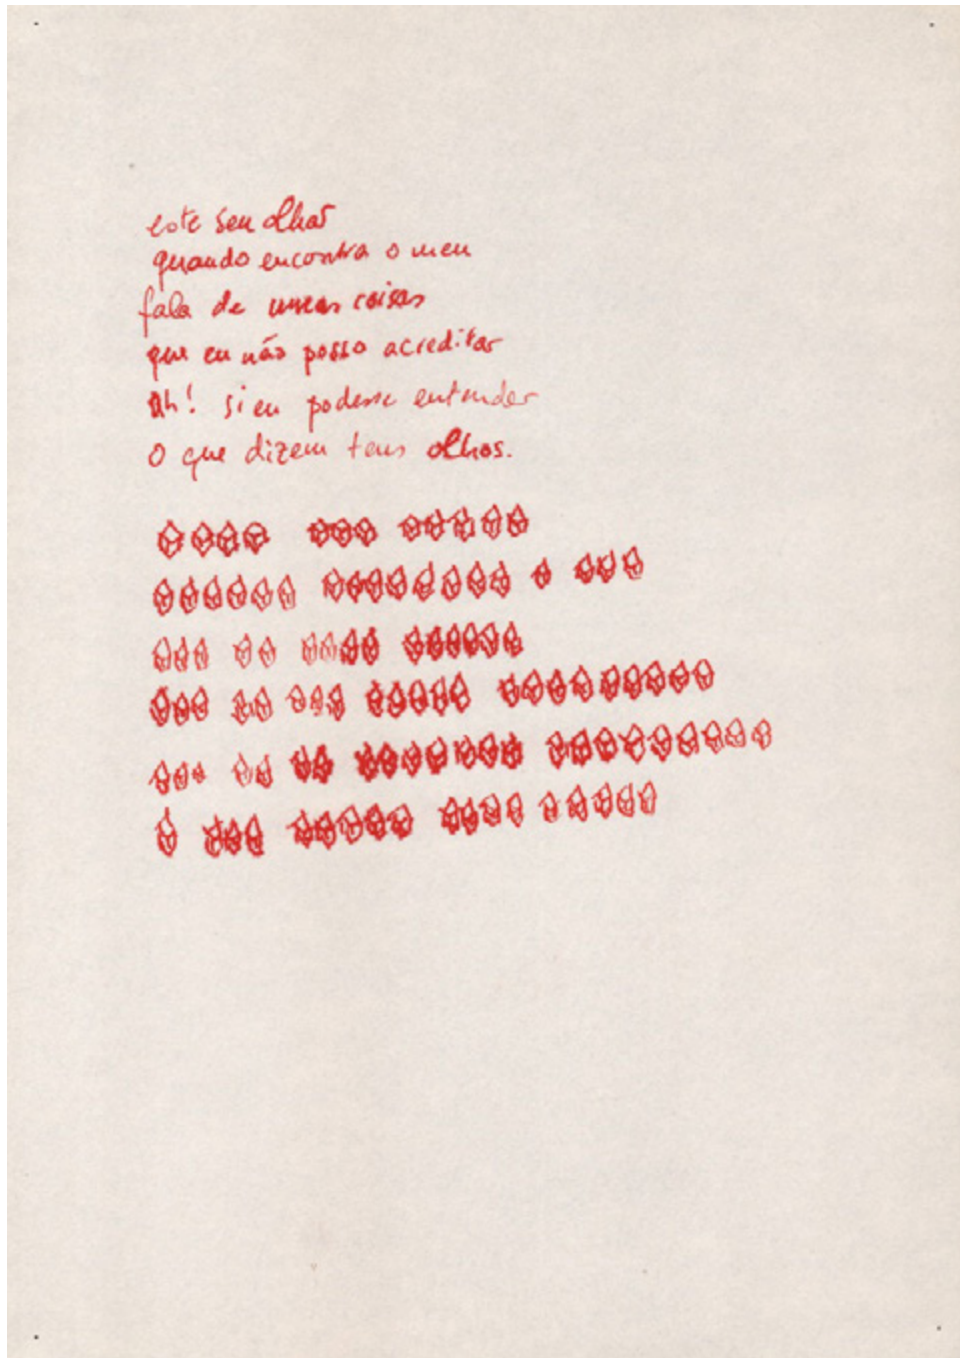 este seu olhar
quando encontra o meu
fala de umas coisas
que eu não posso acreditar
Ah! si eu podesse entender
o que dizem teus olhos.